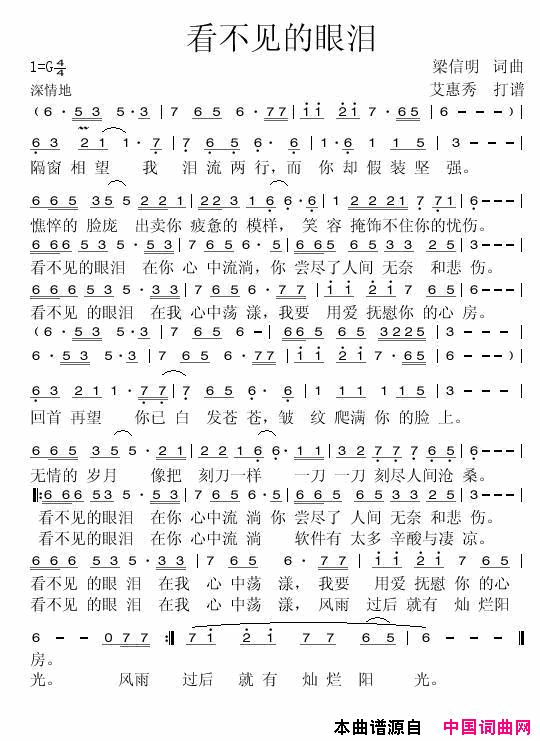 看不见的眼泪
1=G4/4 梁信明 词曲
深情地 艾惠秀 打谱
(6·53 5·3|7 65 6·77|i i 2i 7·65|6---)|
63 21 1·7|7 65 6·6·|1·6 1 15|3---|
隔窗相望 我 泪流两行,而 你却假装坚强。
665 35 5221|2231 66·6|122217 71|6---|
憔悴的脸庞 出卖你疲惫的模样, 笑容掩饰不住你的忧伤。
66653 535·3|7656·6|665 6533 25|3---|
看不见的眼泪 在你心中流淌,你尝尽了人间无奈 和悲伤。
66653 535·3|7656·77|i i 2i 765|6---|
看不见的眼泪 在我心中荡漾,我要 用爱抚慰你的心房。
(6·53 5·3|7 65 6·6|665 65 3225|3---|
6·53 5·3|7 65 6·77|i i 2i 7·65|6---)|
63 211·77|765 6·6·|1 11 15|3---|
回首再望 你已白发苍苍,皱纹爬满你的脸上。
665 35·5|221 66·6|3277 765|6---|
无情的岁月 像把刻刀一样 一刀一刻尽人间沧桑。
‖:66653 535·3|7656·6|665 6533 25|3---|
看不见的眼泪 在你心中流淌你尝尽了人间无奈和悲伤。
看不见的眼泪 在你心中流淌 软件有太多辛酸与凄凉。
66653 535·3|7 65 6·77|i i 2i 7 65|
看不见的眼泪 在我心中荡漾,我要 用爱抚慰你的心
看不见的眼泪 在我心中荡漾,风雨 过后就有灿烂阳
6--077:‖7i 2i 77 65|6---‖
房。
光。 风雨 过后就有灿烂阳光。
本曲谱源自 中国词曲网